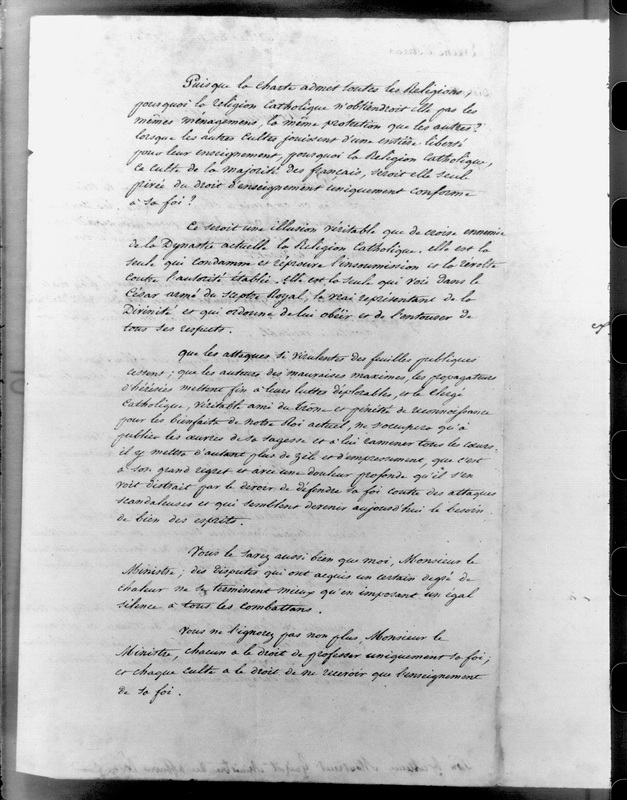 Puisque la charte admet toutes les Religions,
pourquoi la religion Catholique n'obtiendroit elle pas les
mêmes ménagemens, la même protection que les autres?
lorsque les autres Cultes jouissent d'une entière liberté
pour leur enseignement, pourquoi la Religion Catholique,
ce culte de la majorité des français, seroit elle seule
privée du droit d'enseignement uniquement conforme
à sa foi?
Ce seroit une illusion véritable que de croire ennemie
de la Dynastie actuelle la Religion Catholique. elle est la
seule qui condamne et réprouve l'insoumission et la révolte
contre l'autorité établie. elle est la seule qui voie dans le
César armé du sceptre Royal, le vrai représentant de la
Divinité et qui ordonne de lui obéir et de l'entourer de
tous ses respects.
que les attaques si virulentes des feuilles publiques
cessent; que les auteurs des mauvaises maximes, les propagateurs
d'hérésies mettent fin à leurs luttes déplorables, et le Clergé
Catholique, véritable ami du trône et pénétré de reconnoissance
pour les bienfaits de notre Roi actuel, ne s'occupera qu'à
publier les œuvres de sa sagesse et à lui ramener tous les cœurs.
il y mettra d'autant plus de zèle et d'empressement, que c'est
à son grand regret et avec une douleur profonde qu'il s'en
voit distrait par le devoir de défendre sa foi contre des attaques
scandaleuses et qui semblent devenir aujourd'hui le besoin
de bien des esprits.
Vous le savez aussi bien que moi, Monsieur le
Ministre; des disputes qui ont acquis un certain degré de
chaleur ne se terminent mieux qu'en imposant un égal
silence à tous les combattans.
Vous ne l'ignorez pas non plus, Monsieur le
Ministre, chacun a le droit de professer uniquement sa foi;
et chaque culte a le droit de ne recevoir que l'enseignement
de sa foi.